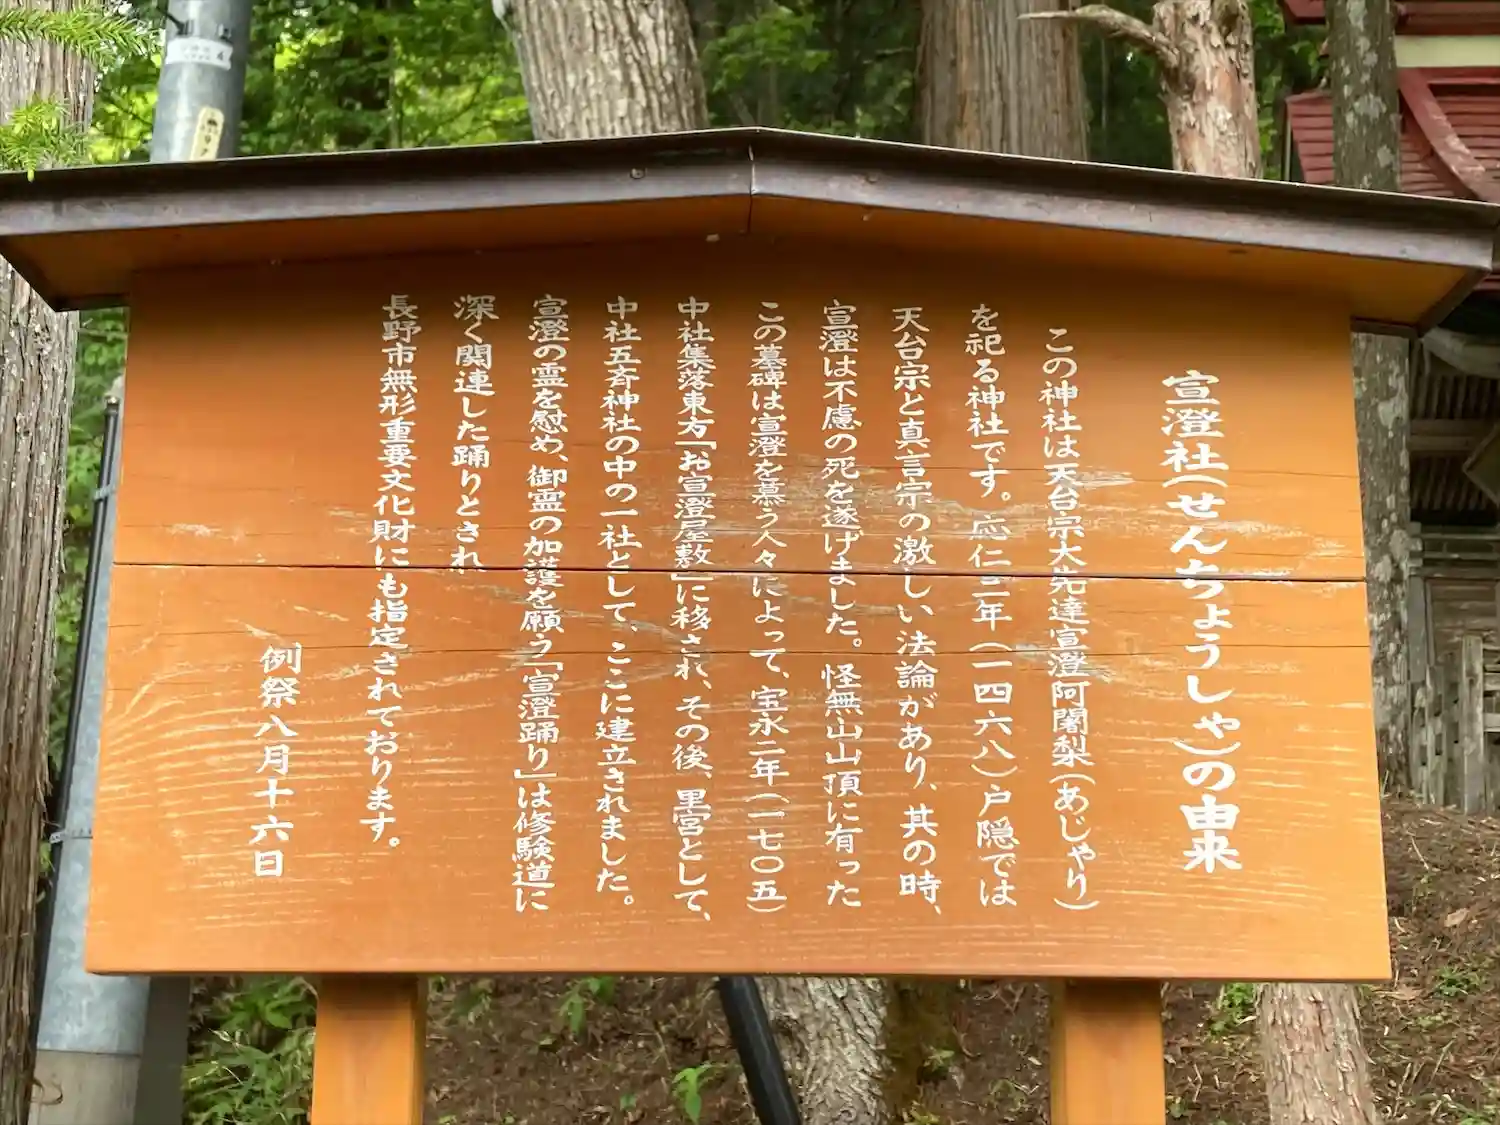 宣澄社(せんちょうしゃ)の由来
この神社は天台宗大先達宣澄阿闍梨(あじゃり)
を祀る神社です。応仁二年(一四六八)戸隠では
天台宗と真言宗の激しい法論があり、其の時、
宣澄は不慮の死を遂げました。怪無山山頂に有った
この墓碑は宣澄を慕う人々によって、宝永二年(一七〇五)
中社集落東方「お宣澄屋敷」に移され、その後、里宮として、
中社五斉神社の中の一社として、ここに建立されました。
宣澄の霊を慰め、御霊の加護を願う「宣澄踊り」は修験道に
深く関連した踊りとされ
長野市無形重要文化財にも指定されております。
例祭八月十六日